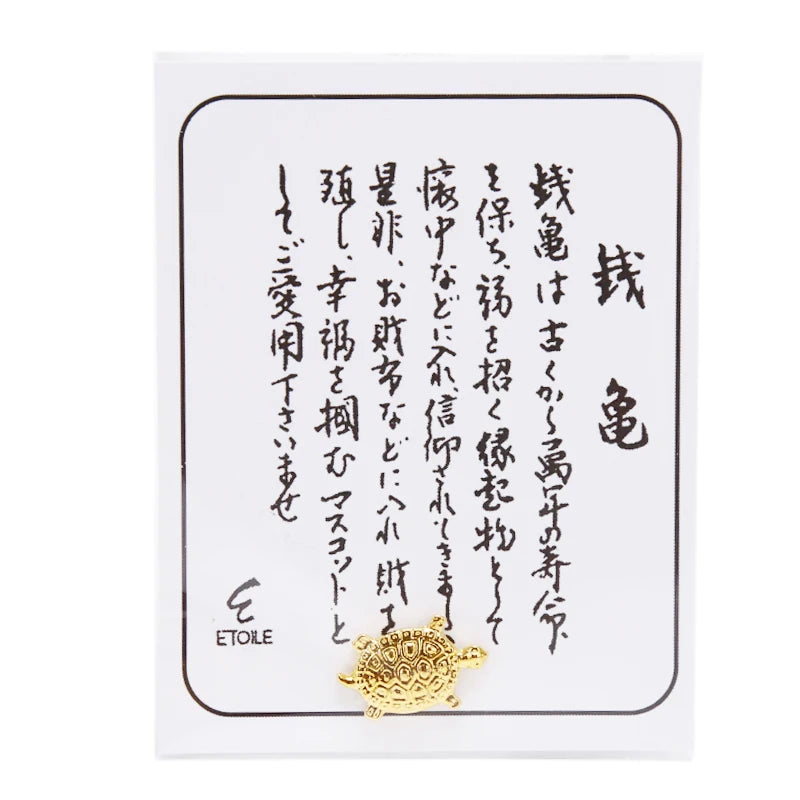 銭亀
銭亀は古くから萬年の寿命
を保ち、福を招く縁起物として
懐中などに入れ、信仰されてきまし
是非、お財布などに入れ財を
殖し、幸福を掴むマスコットと
してご愛用下さいませ
ETOILE